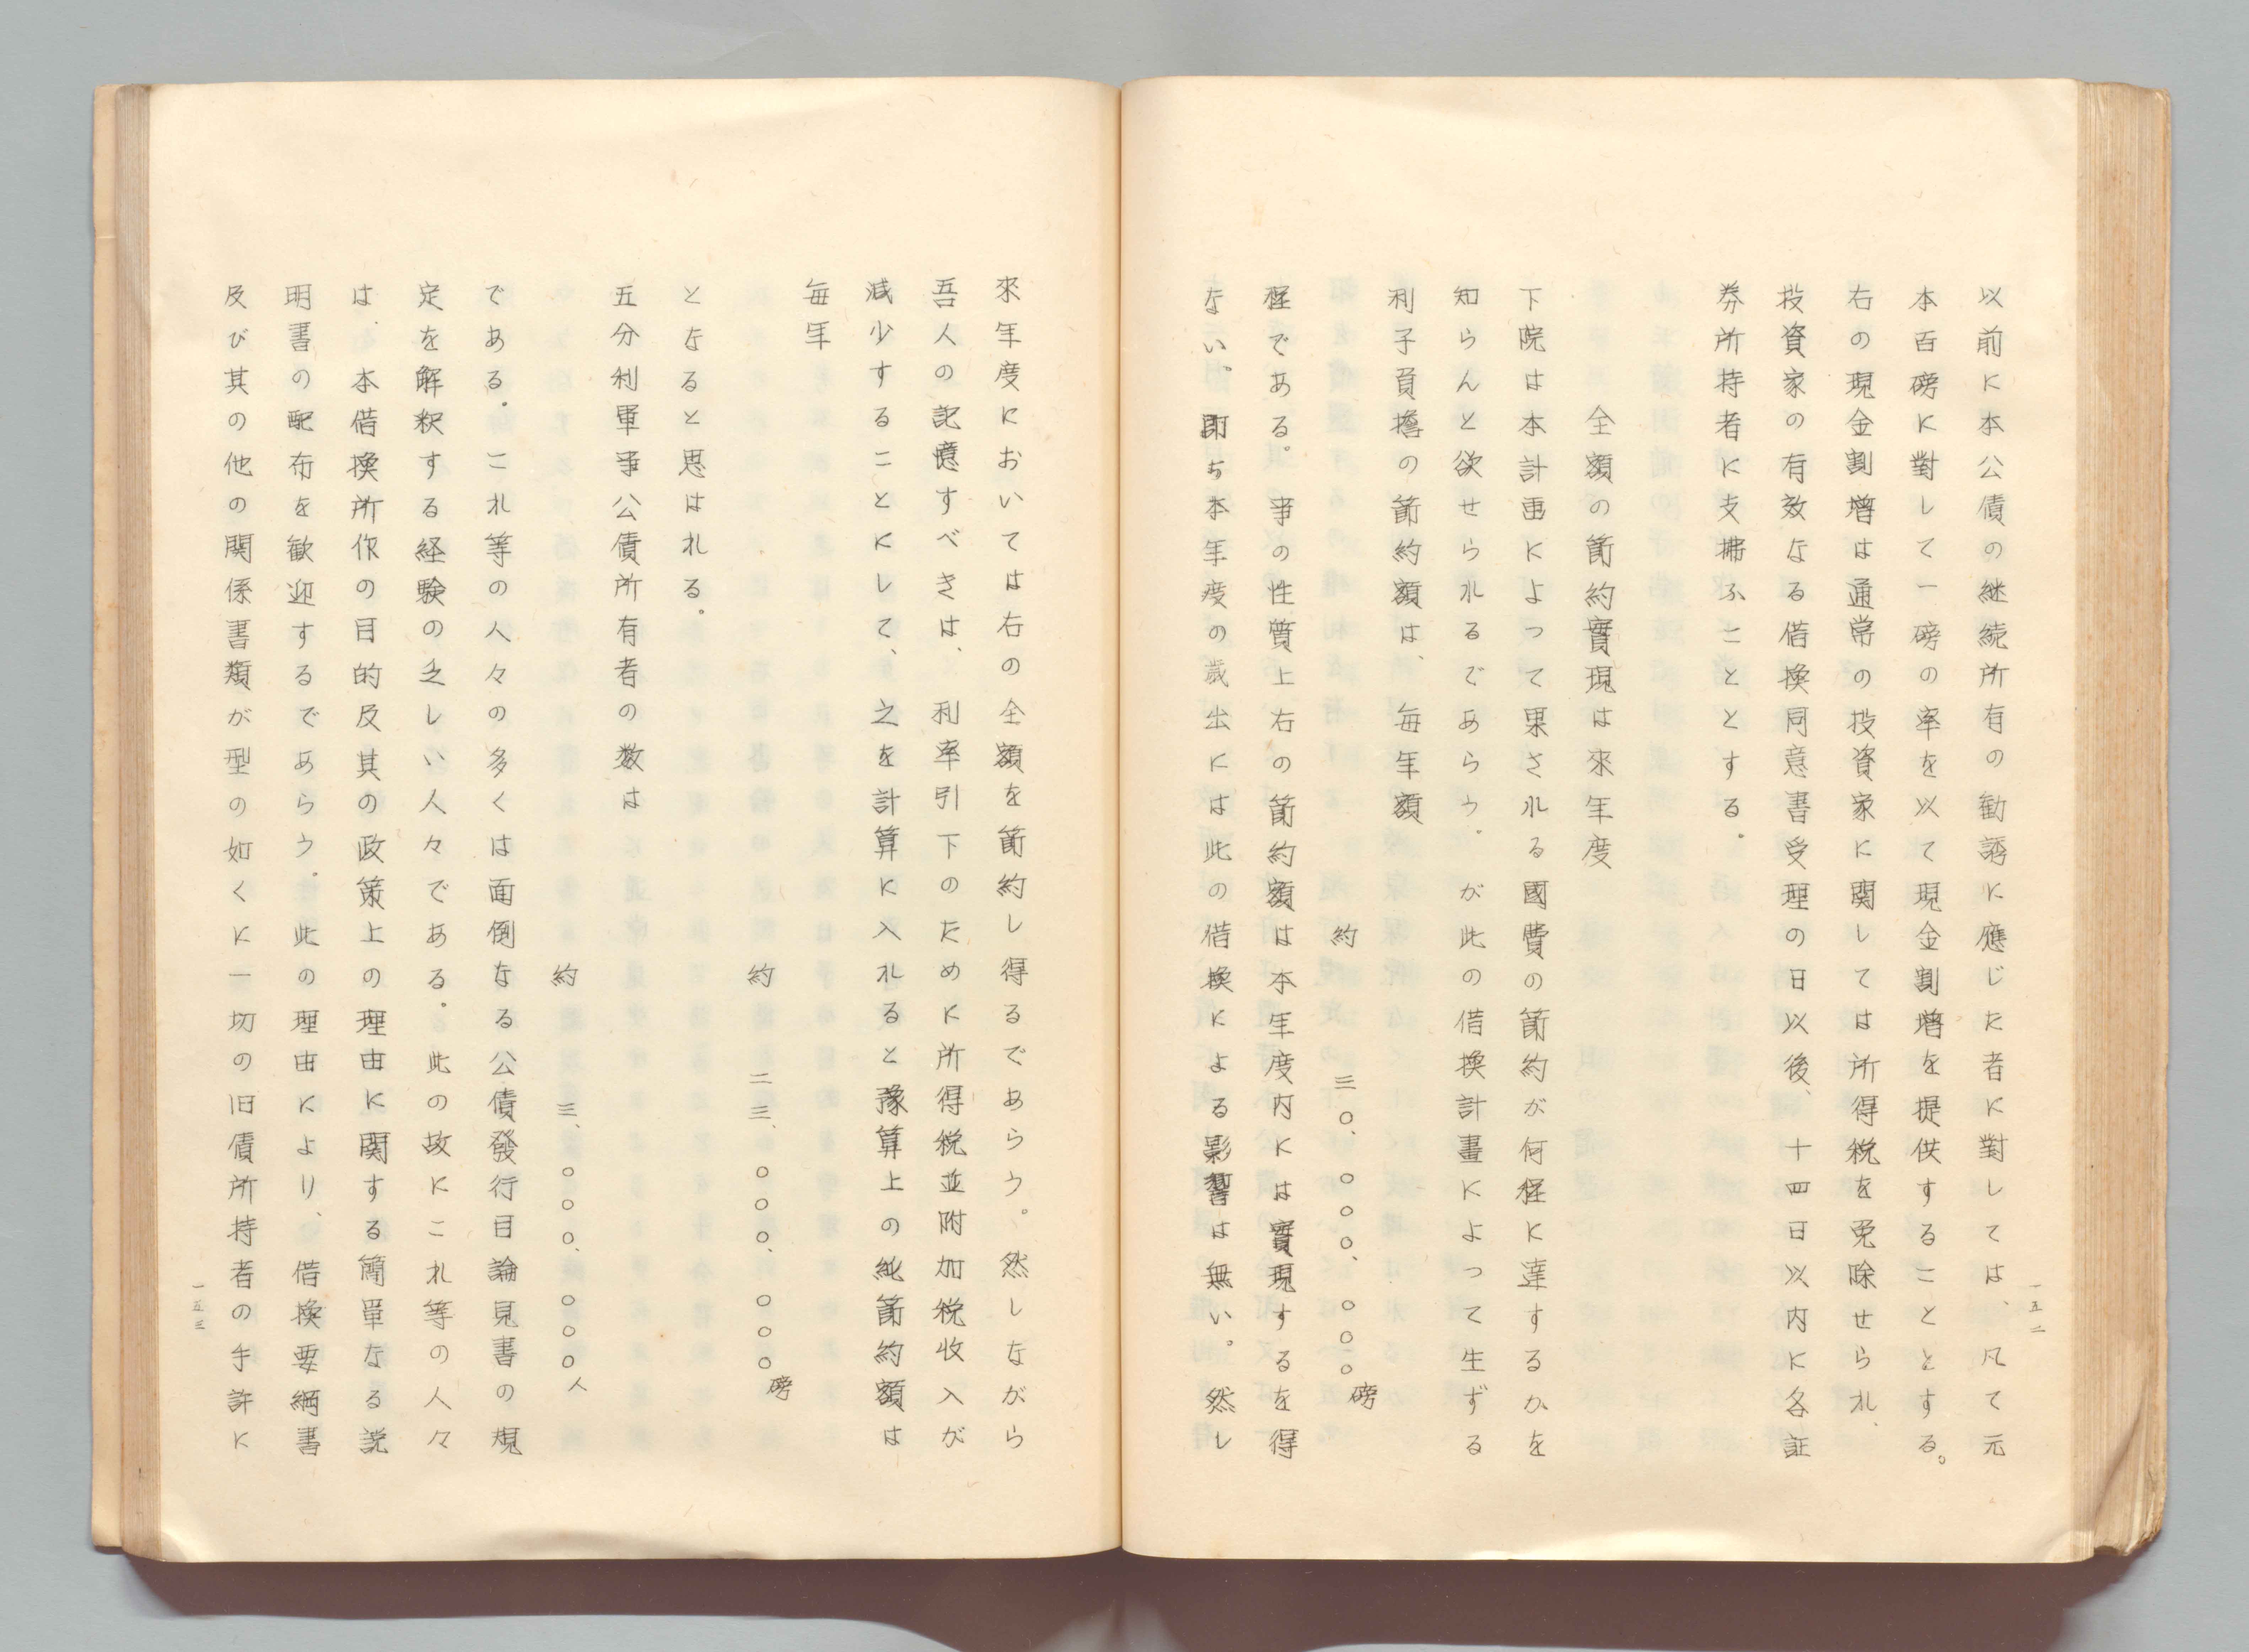 一五二
以前に本公債の継続所有の勧誘に應じた者に對しては、凡て元
本百磅に對して一磅の率を以て現金割増を提供することとする。
右の現金割増は通常の投資家に関しては所得税を免除せられ、
投資家の有效なる借換同意書受理の日以後、十四日以内に各証
券所持者に支拂ふこととする。
全額の節約實現は來年度
下院は本計画によって果される國費の節約が何程に達するかを
知らんと欲せられるであらう。が此の借換計畫によって生ずる
利子負擔の節約額は、毎年額
約 三〇、〇〇〇、〇〇〇磅
程である。事の性質上右の節約額は本年度内には實現するを得
ない、即ち本年度の歳出には此の借換による影響は無い。然し
來年度においては右の全額を節約し得るであらう。然しながら
吾人の記憶すべきは、利率引下のために所得税並附加税收入が
減少することにして、之を計算に入れると豫算上の純節約額は
毎年
約 二三、〇〇〇、〇〇〇磅
となると思はれる。
五分利軍事公債所有者の数は
約 三、〇〇〇、〇〇〇人
である。これ等の人々の多くは面倒なる公債發行目論見書の規
定を解釈する経験の乏しい人々である。此の故にこれ等の人々
は、本借換所作の目的及其の政策上の理由に関する簡単なる説
明書の配布を歓迎するであらう。此の理由により、借換要綱書
及び其の他の関係書類が型の如くに一切の旧債所持者の手許に
一五三